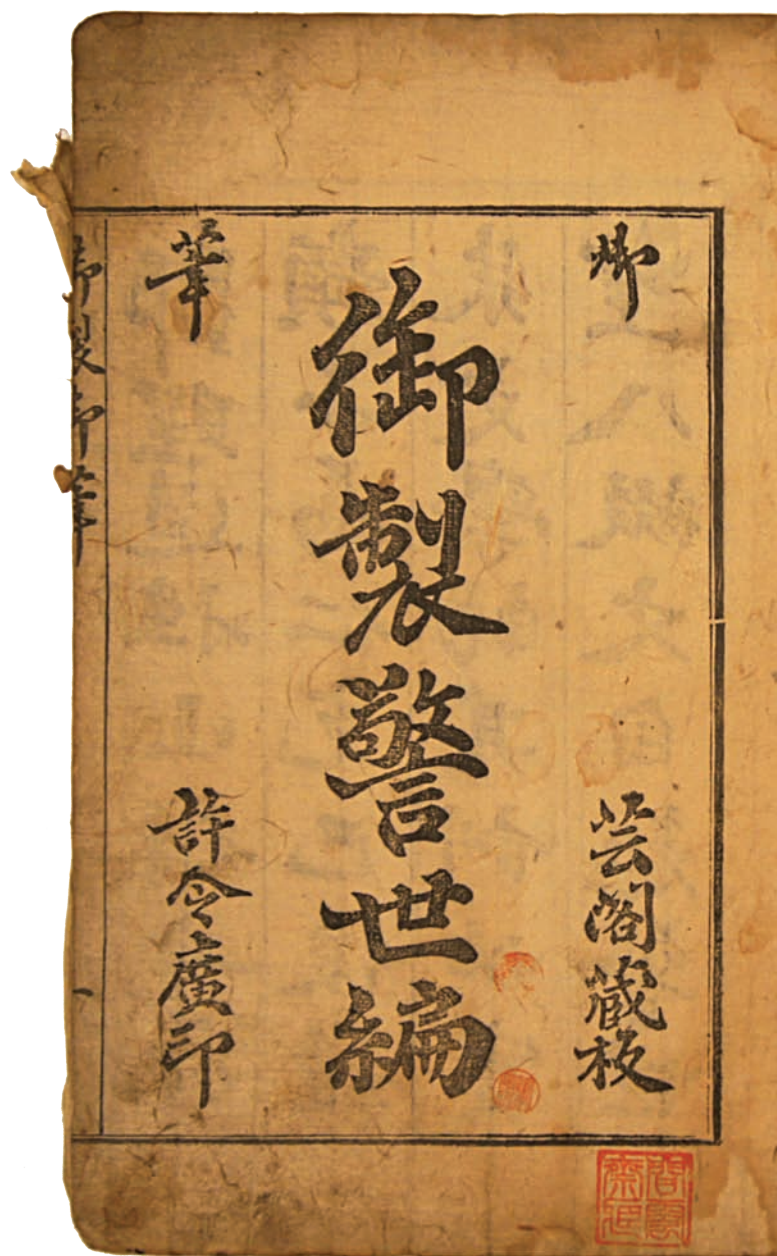 御
芸閣藏板
御製警世編
筆
許令廣印
御製御筆